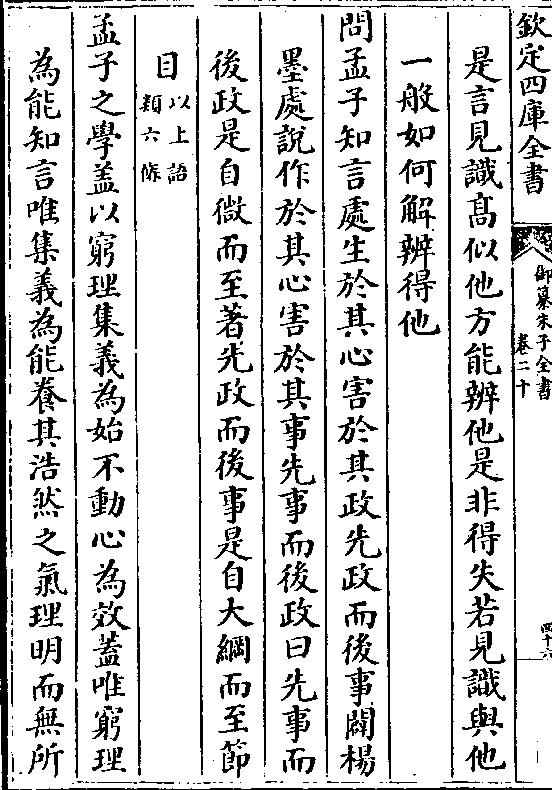 欽定四庫全書
御纂朱子全書
卷二十
四十六
是言見識髙似他方能辨他是非得失若見識與他
一般如何解辨得他
問孟子知言處生於其心害於其政先政而後事闢楊
墨處說作於其心害於其事先事而後政曰先事而
後政是自微而至著先政而後事是自大綱而至節
目以上語
類六條
孟子之學盖以窮理集義為始不動心為效蓋唯窮理
為能知言唯集義為能養其浩然之氣理明而無所